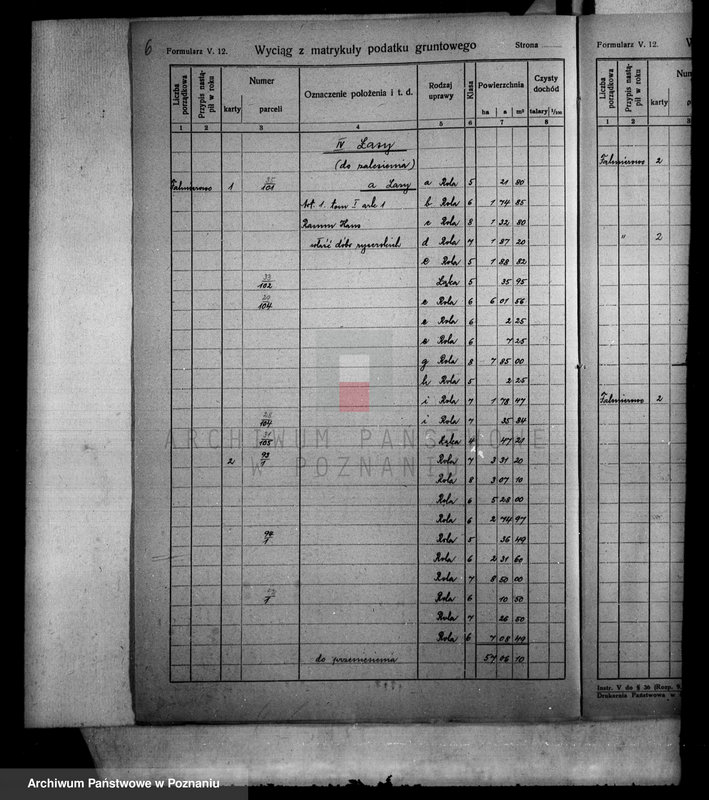 6
Formularz V. 12.
Wyciąg z matrykuły podatku gruntowego
Strona
Liczba porządkowa
Przypis nastąpił w roku
Numer
karty
parceli
Oznaczenie położenia i t. d.
Rodzaj uprawy
Klasa
Powierzchnia
ha a m²
Czysty dochód
talary 1/100
1 2 3 4 5 6 7 8
IV Lasy
(do zalesienia)
Falmierowo 1 35/101 a Lasy a Rola 5 21 80
Art. 1. tom I ark 1 b Rola 6 1 74 85
Ramm Hans c Rola 8 1 32 80
włość dóbr rycerskich d Rola 7 1 87 20
e Rola 5 1 88 82
33/102 Łąka 5 35 95
20/104 e Rola 6 6 01 56
e Rola 6 2 25
e Rola 6 7 25
g Rola 8 7 85 00
h Rola 5 2 25
i Rola 7 1 78 47
28/104 i Rola 7 35 34
31/105 Łąka 4 47 21
2 93/1 Rola 7 3 31 20
Rola 8 3 07 10
Rola 6 5 28 00
Rola 6 2 74 97
97/1 Rola 5 36 49
Rola 6 2 31 60
Rola 7 8 50 00
Rola 6 10 50
Rola 7 26 50
Rola 6 7 08 49
do przeniesienia 57 06 10
Formularz V. 12.
W
Liczba porządkowa
Przypis nastąpił w roku
Num
karty
1 2 3
Falmierowo 2
" 2
Falmierowo 2
Instr. V do § 36 (Rozp. 9.
Drukarnia Państwowa w
ARCHIWUM PAŃSTWOWE
W POZNANIU
Archiwum Państwowe w Poznaniu